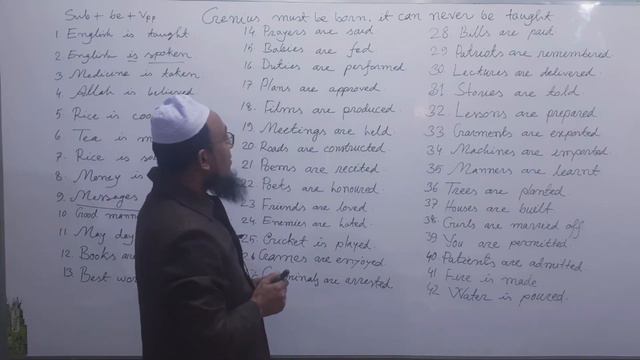 Sub + be + Vpp
Genius must be born, it can never be taught
1. English is taught
2 English is spoken
3 Medicine is taken
4. Allah is believed
5. Rice is
6. Tea is
7. Rice is
8. Money is
9. Messages
10 Good
11. May day
12. Books are
13. Best
14 Prayers are said
15 Babies are fed
16 Duties are performed
17 Plans are approved
18. Films are produced
19. Meetings are held
20 Roads are constructed
21 Poems are recited
22 Poets are honoured
23 Friends are loved
24. Enemies are hated
25 Cricket is played
26 Games are enjoyed
are arrested
28 Bills are paid
29 Patriots are remembered
30 Lectures are delivered
31 Stories are told
32. Lessons are prepared
33 Garments are exported
34 Machines are imported
35 Manners are learnt
36 Trees are planted
37 Houses are built
38 Girls are married off
39 You are permitted
40 Patients are admitted
41 Fire is made
42 Water is poured.